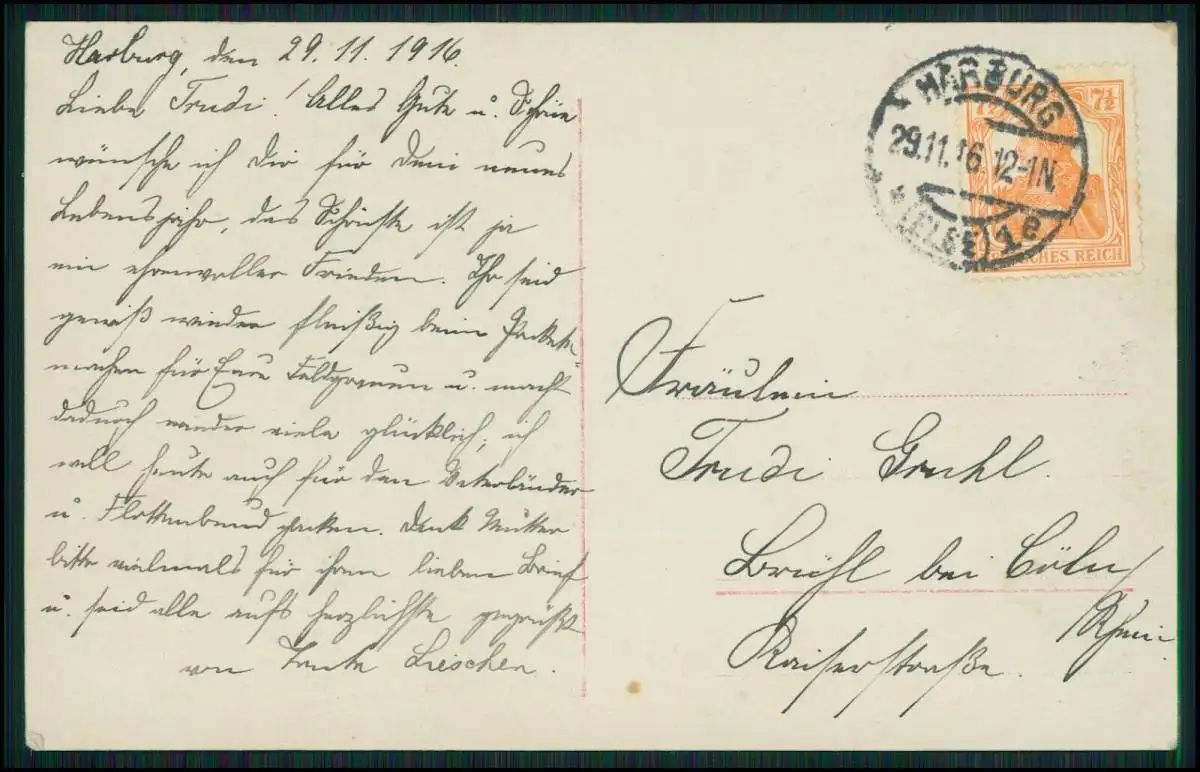 Harburg, den 29.11.1916.
Liebe Trudi! Alles Gute u. Schöne
wünsche ich Dir für Dein neues
Lebensjahr, das Schönste ist ja
ein ehrenvoller Frieden. Ihr seid
gewiß wieder fleißig beim Pakete-
machen für Eure Feldgrauen u. macht
dadurch wieder viele glücklich, ich
will heute auch für den Vaterländ.
u. Flottenbund packen. Dank Mutter
bitte vielmals für ihren lieben Brief
u. seid alle aufs herzlichste gegrüßt
von Tante Lieschen.
HARBURG
29.11.16. 12-1N.
(ELBE) 1e
7½ 7½
DEUTSCHES REICH
Fräulein
Trudi Gruhl.
Brühl bei Cöln/
Rhein.
Kaiserstraße.